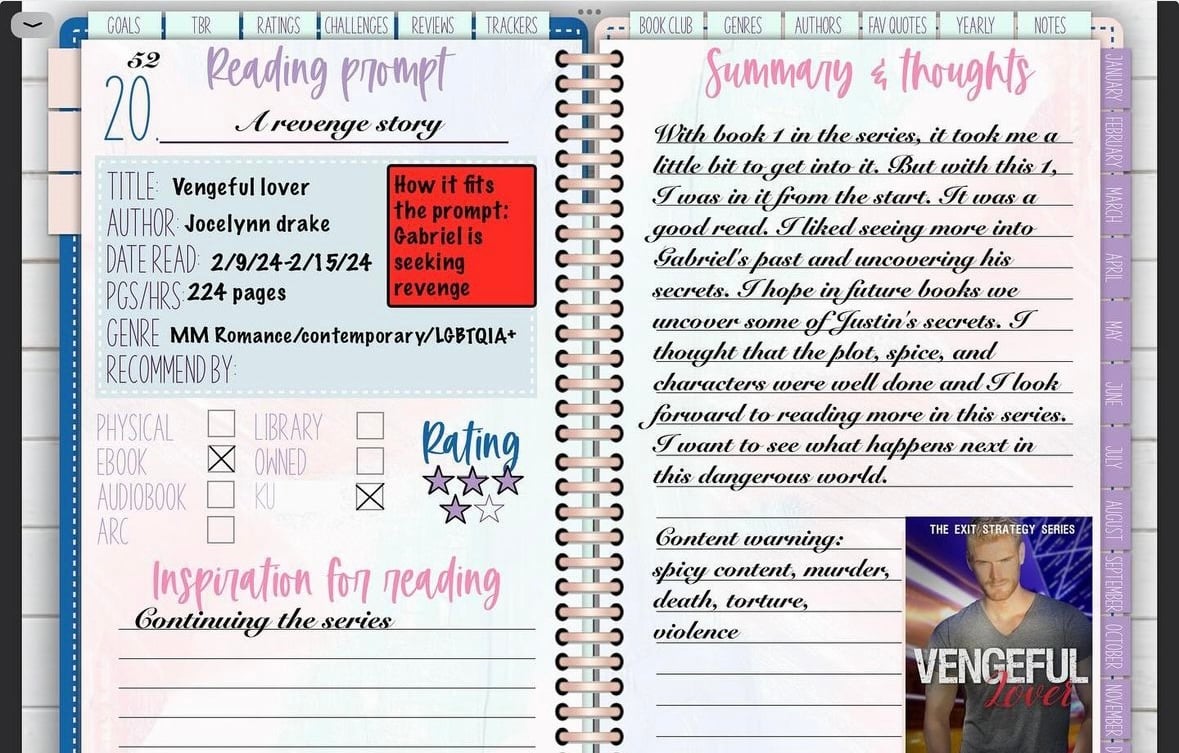 GOALS TBR RATINGS CHALLENGES REVIEWS TRACKERS BOOK CLUB GENRES AUTHORS FAV QUOTES YEARLY NOTES
52
20.
Reading prompt
A revenge story
TITLE: Vengeful lover
AUTHOR: Jocelynn drake
DATE READ: 2/9/24-2/15/24
PGS/HRS: 224 pages
GENRE MM Romance/contemporary/LGBTQIA+
RECOMMEND BY:
How it fits
the prompt:
Gabriel is
seeking
revenge
PHYSICAL LIBRARY
EBOOK OWNED
AUDIOBOOK KU
ARC
Rating
Inspiration for reading
Continuing the series
Summary & thoughts
With book 1 in the series, it took me a
little bit to get into it. But with this 1,
I was in it from the start. It was a
good read. I liked seeing more into
Gabriel's past and uncovering his
secrets. I hope in future books we
uncover some of Justin's secrets. I
thought that the plot, spice, and
characters were well done and I look
forward to reading more in this series.
I want to see what happens next in
this dangerous world.
Content warning:
spicy content, murder,
death, torture,
violence
THE EXIT STRATEGY SERIES
VENGEFUL
Lover
JANUARY
FEBRUARY
MARCH
APRIL
MAY
JUNE
JULY
AUGUST
SEPTEMBER
OCTOBER
NOVEMBER
D